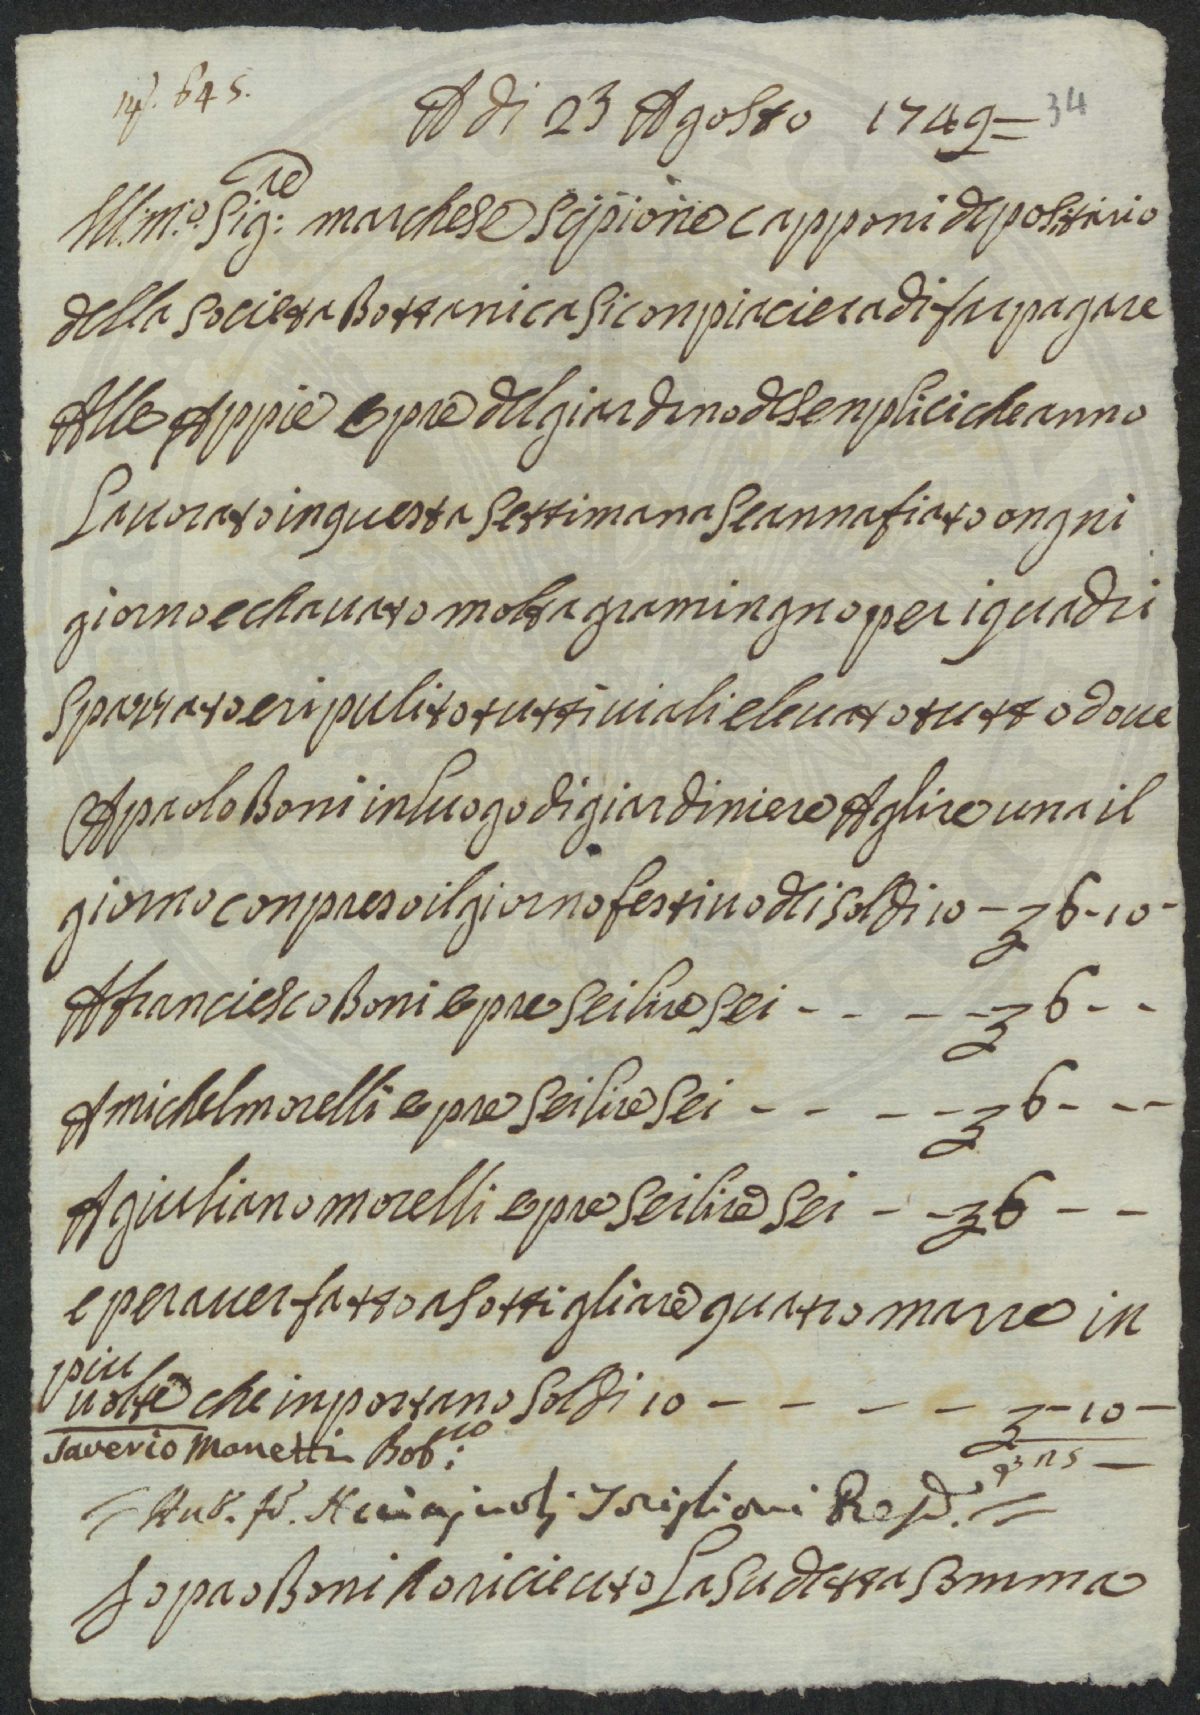 645.
A di 23 Agosto 1749 = 34
Ill:m:o Sig:re marchese Scipione capponi depositario
della Societa Bottanica Si conpiaciera di far pagare
Alle Appiè opre del giardino de senplici che anno
Lauorato in questa Settimana Se annafiato ongni
giorno e chauato molta gramingno per i quadri
Spazzato e ripulito tutti i uiali e leuato tutto doue
A paolo Boni in luogo di giardiniere A lire una il
giorno conpreso il giorno festiuo dei soldi 10 - 6-10-
A franciesco Boni opre Sei lire Sei - - - - 6 - -
A michel morelli opre Sei lire Sei - - - - 6 - - -
A giuliano morelli opre Sei lire Sei - - 6 - -
e per auer fatto a Sottigliare quatro marre in
piu
uolte che inportano Soldi 10 - - - - - - 10 -
Saverio Manetti
25 -
Io pao Boni ho riceuuto La Sudetta Somma